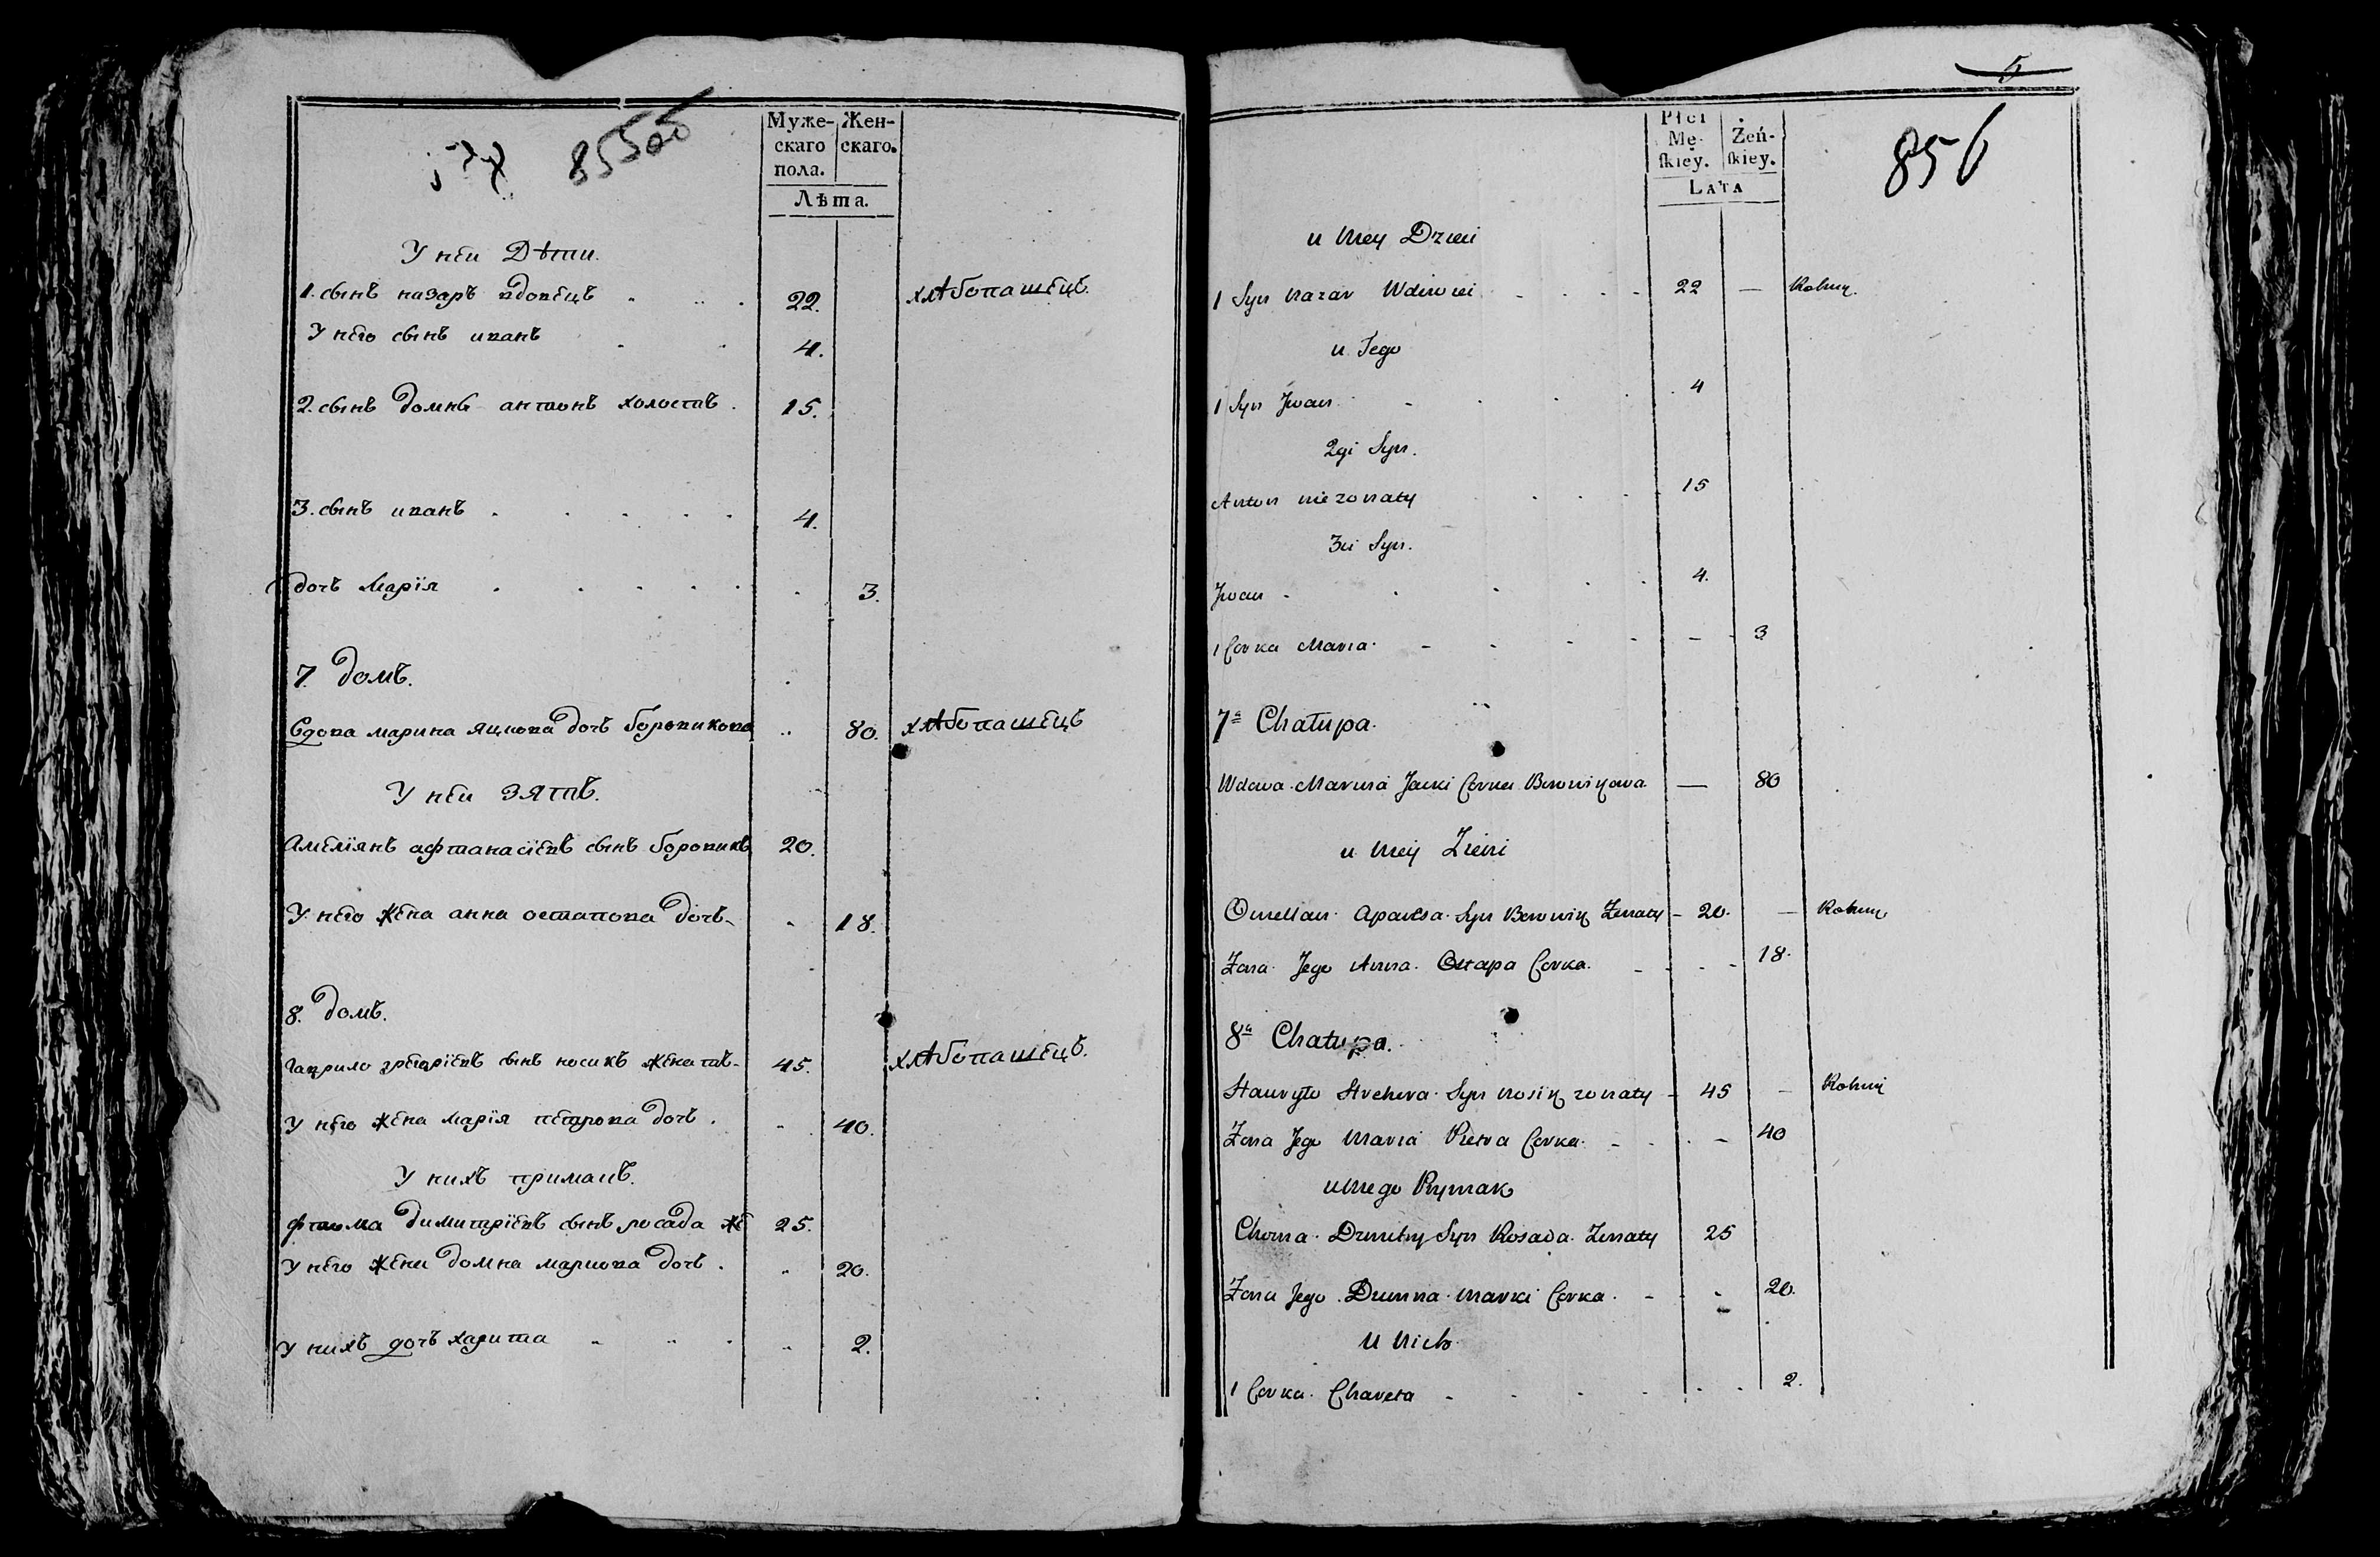 855об
Муже-
скаго
пола.
Жен-
скаго.
Лѣта.
У неи Дѣти.
1. сынъ назаръ вдовецъ . . . 22. хлѣбопашецъ.
У него сынъ иванъ . . 4.
2. сынъ домны антонъ холостъ . 15.
3. сынъ иванъ . . . . . 4.
дочь Марїя . . . . . 3.
7. домъ.
Вдова марина яцкова дочь боровикова 80. хлѣбопашецъ
У неи зять.
Амелїянъ афтанасїевъ сынъ боровикъ 20.
У него жена анна остапова дочь 18.
8. домъ.
гаврило григорїевъ сынъ носикъ женатъ 45. хлѣбопашецъ.
У него жена марїя петрова дочь . 40.
У нихъ примакъ.
фтома димитрїевъ сынъ росада же 25.
У него жена домна маркова дочь . 20.
У нихъ дочь харита 2.
5
Płci
Mę-
ſkiey.
Żeń-
ſkiey.
LATA
856
u Niey Dzieci
1 Syn Nazar Wdowiec 22 — Rolnik.
u Jego
1 Syn Jwan 4
2gi Syn.
Anton nie zonaty 15
3ci Syn.
Jwan 4.
1 Corka Maria 3
7ª Chałupa.
Wdowa Marina Jacki Corka Borowikowa — 80
u Niey Zieńć
Omelian Apanasa Syn Borowik Zonaty 20. — Rolnik
Zona Jego Anna Ostapa Corka. 18.
8ª Chałupa.
Hawryło Hrehora Syn Nosik zonaty 45 — Rolnik
Zona Jego Maria Pietra Corka. 40
u Niego Prymak
Choma Dzmitry Syn Rosada Zonaty 25
Zona Jego Dumna Marki Corka. 20.
u Nich
1 Corka Chareta 2.